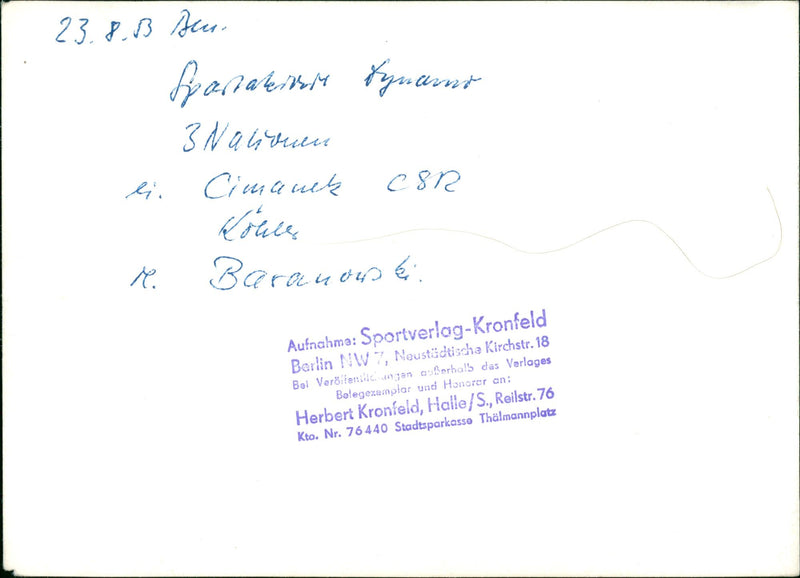 23.8.53 Bln.
Spartakiade Dynamo
3 Nationen
li. Cimanek CSR
Köhler
r. Baranowski.
Aufnahme: Sportverlag-Kronfeld
Berlin NW 7, Neustädtische Kirchstr. 18
Bei Veröffentlichungen außerhalb des Verlages
Belegexemplar und Honorar an:
Herbert Kronfeld, Halle/S., Reilstr. 76
Kto. Nr. 76440 Stadtsparkasse Thälmannplatz